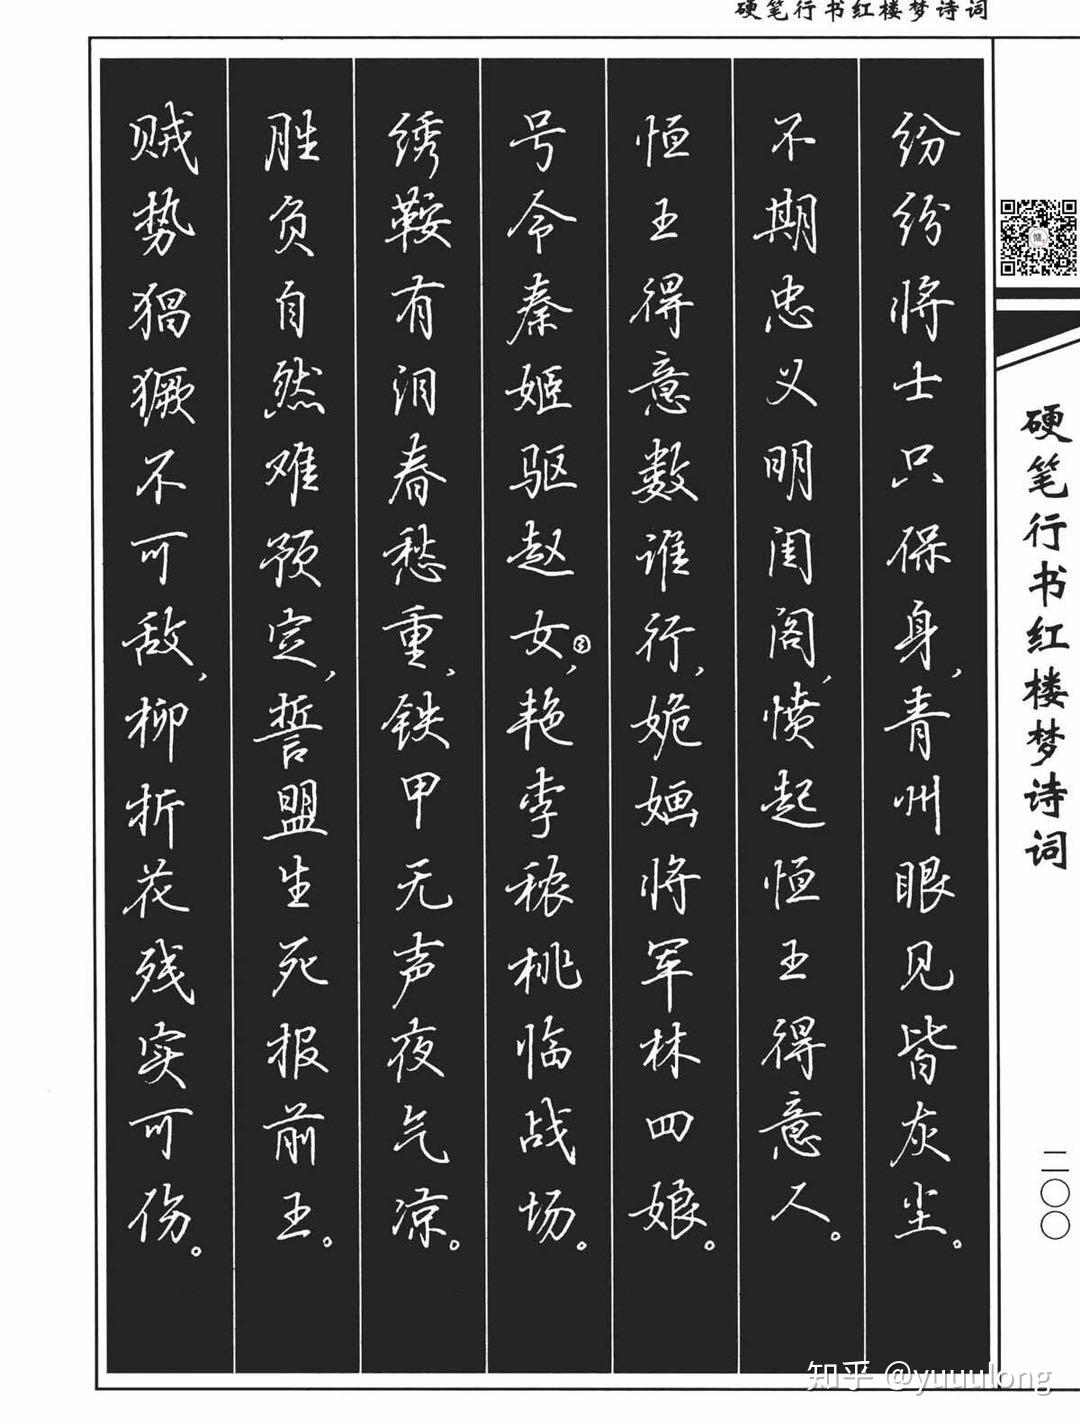 硬笔行书红楼梦诗词
纷纷将士只保身，青州眼见皆灰尘。
不期忠义明闺阁，愤起恒王得意人。
恒王得意数谁行，姽婳将军林四娘。
号令秦姬驱赵女，艳李秾桃临战场。
绣鞍有泪春愁重，铁甲无声夜气凉。
胜负自然难预定，誓盟生死报前王。
贼势猖獗不可敌，柳折花残实可伤。
硬笔行书红楼梦诗词
二〇〇
知乎 @yuuulong